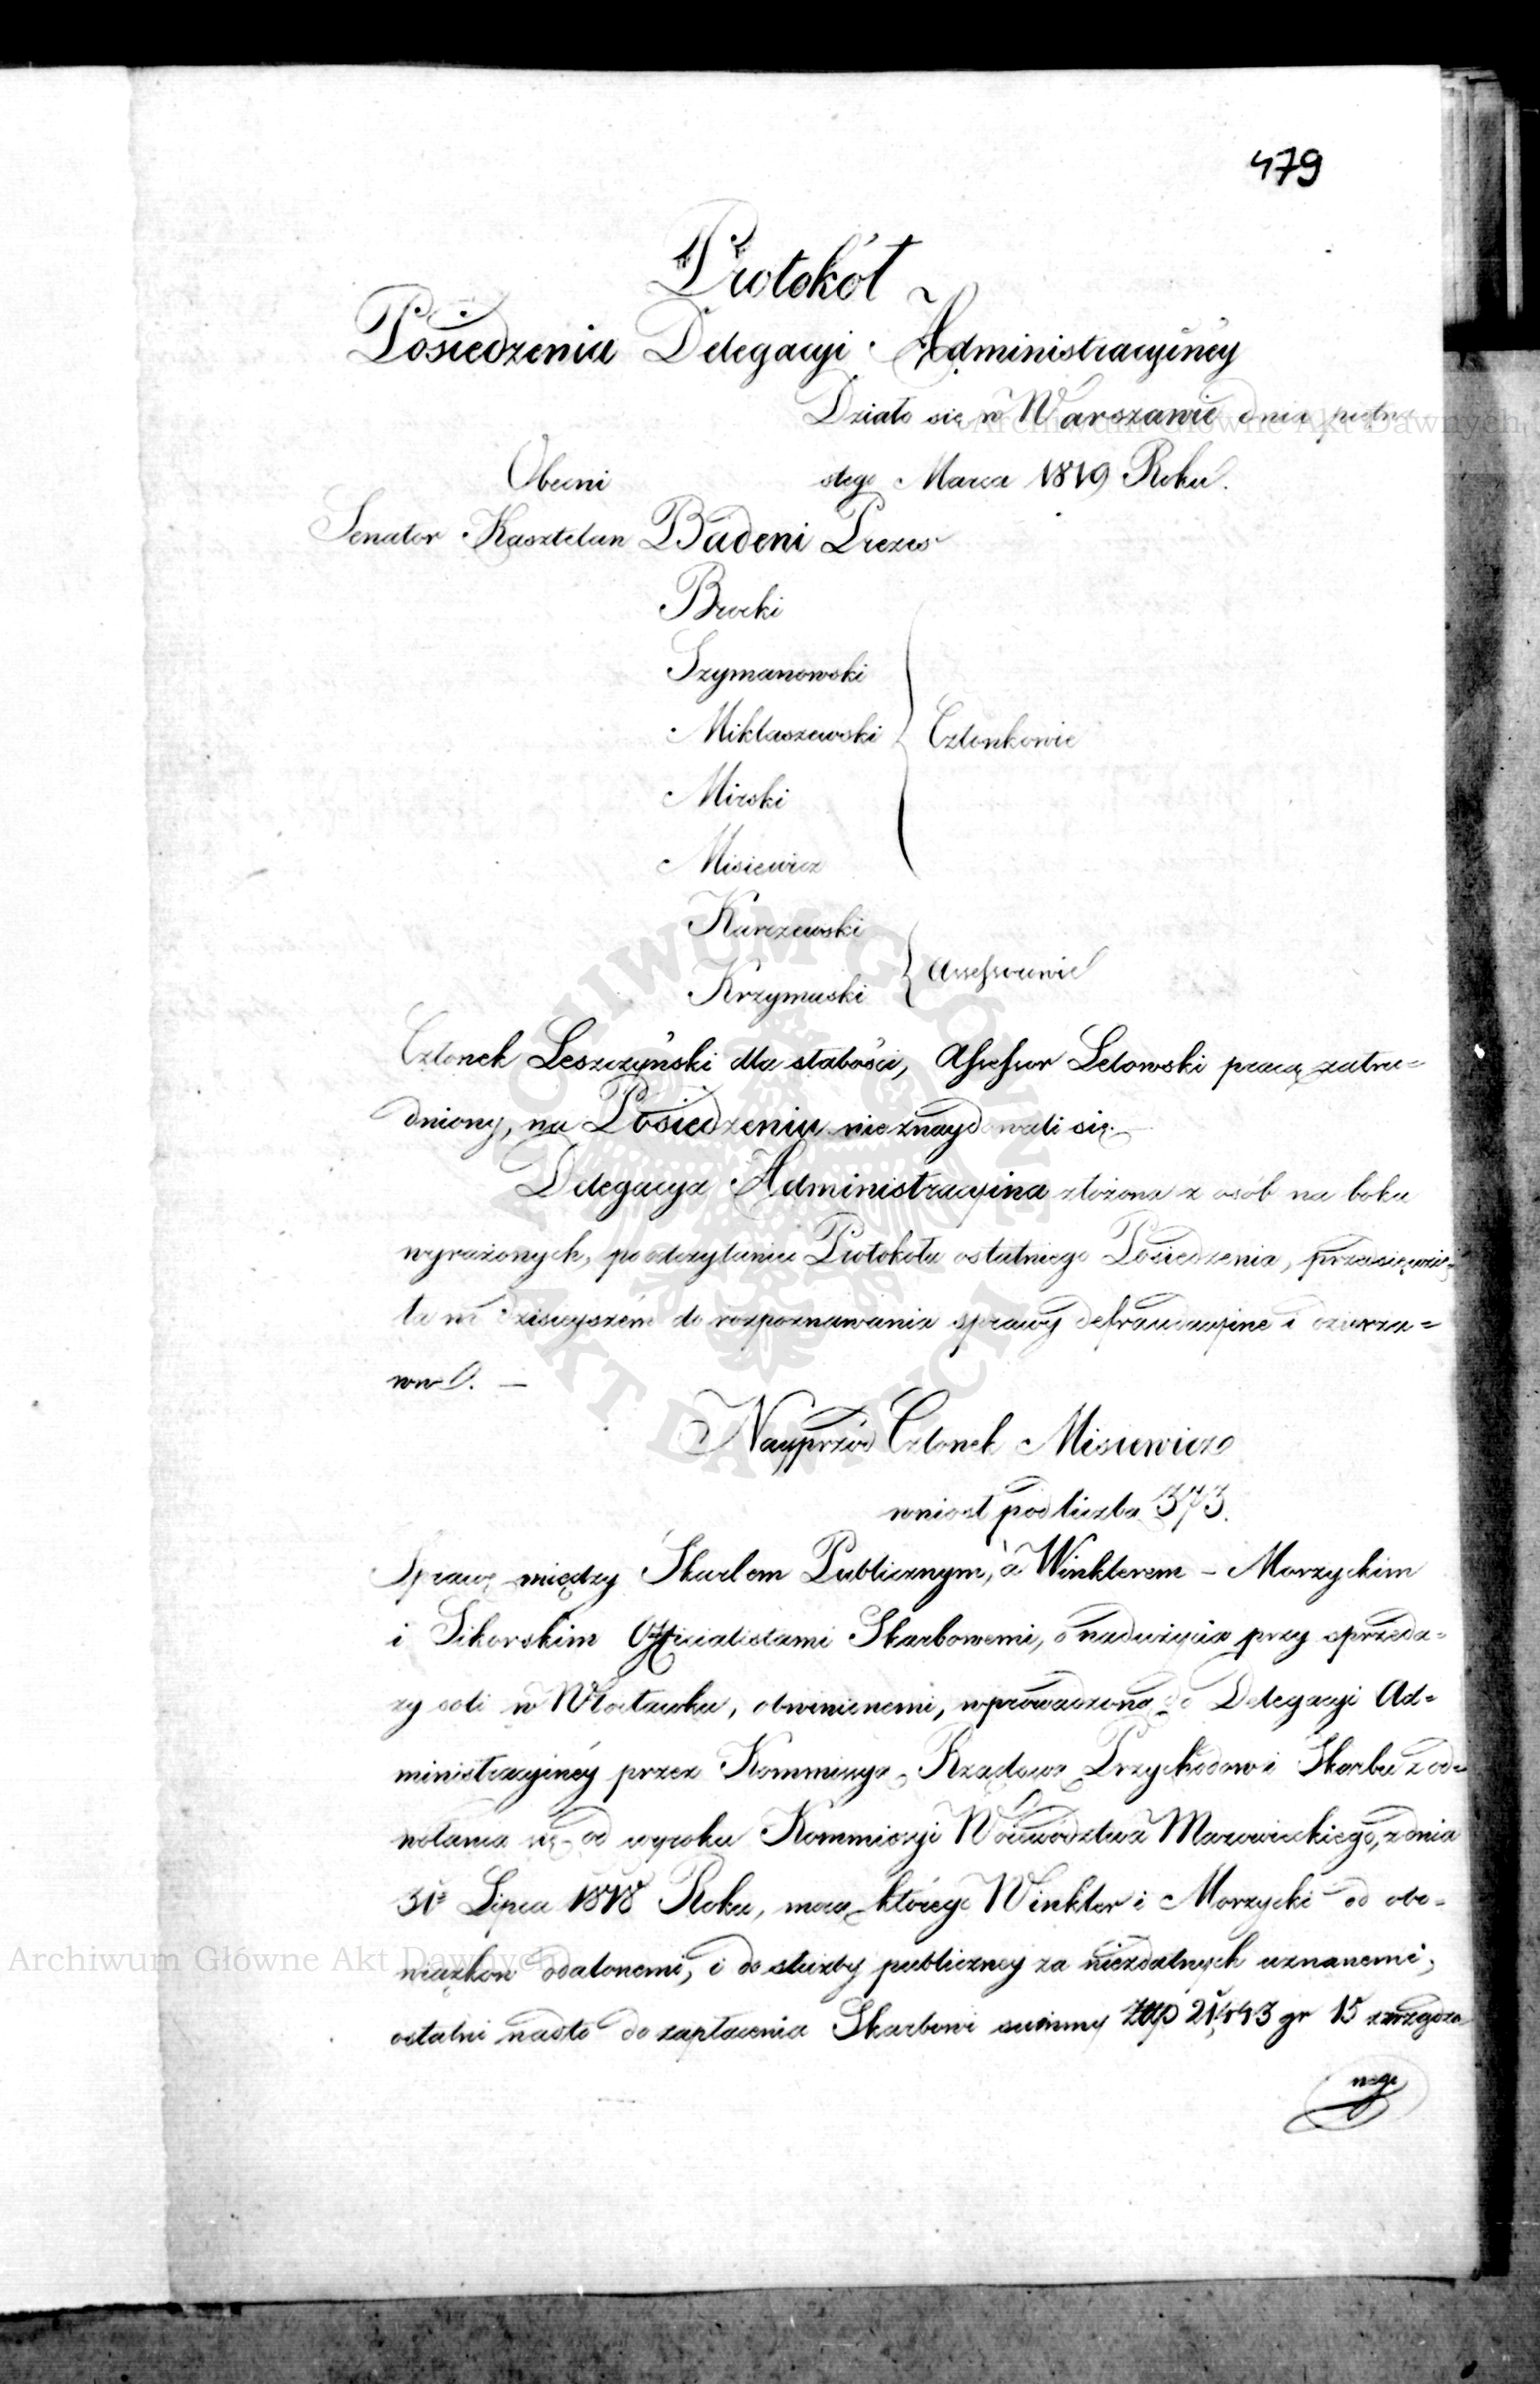 479
Protokół
Posiedzenia Delegacyi Administracyiney
Działo się w Warszawie dnia piętna
stego Marca 1819 Roku.
Obecni
Senator Kasztelan Badeni Prezes
Brocki
Szymanowski
Miklaszewski
Członkowie
Mirski
Misiewicz
Karczewski
Krzymuski
Assessorowie
Członek Leszczyński dla słabości, Assessor Letowski pracą zatru=
dniony, na Posiedzeniu nie znaydowali się.
Delegacya Administracyina złożona z osób na boku
wyrażonych, po odczytaniu Protokołu ostatniego Posiedzenia, przedsięwzię
ła w dzisieyszém do rozpoznawania sprawy defraudacyine i dzierża=
wne. —
Nayprzód Członek Misiewicz
wniosł pod liczbą 373.
Sprawę między Skarbem Publicznym, a Winklerem – Morzyckim
i Sikorskim Officialistami Skarbowemi, o nadużycia przy sprzeda=
ży soli w Włocławku, obwinionemi, wprowadzoną do Delegacyi Ad=
ministracyiney przez Kommissyą Rządową Przychodów i Skarbu z od=
wołania się od wyroku Kommissyi Woiewództwa Mazowieckiego, z dnia
31º Lipca 1818 Roku, mocą którego Winkler i Morzycki od obo=
wiązków oddalonemi, i do służby publiczney za niezdatnych uznanemi,
ostatni nadto do zapłacenia Skarbowi summy Złłp gr 15 zrządzo
nego
Archiwum Główne Akt Dawnych
Archiwum Główne Akt Dawnych
ARCHIWUM GŁÓWNE AKT DAWNYCH